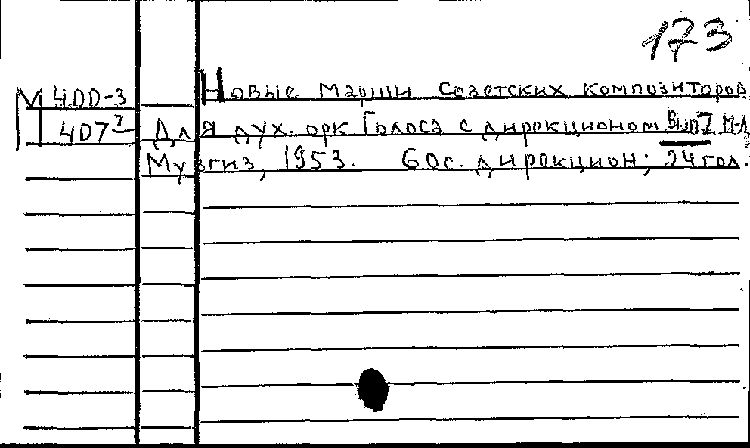 173
М 400-3
П 407⁷ Новые марши Советских композиторов
Для дух. орк Голоса с дирекционом Вып 7 М-Л
Музгиз, 1953. 60с. дирекцион; 24 гол.